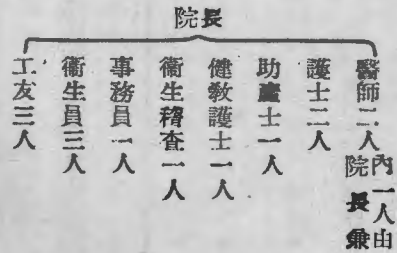 院長
醫師二人
內一人由
院長兼
護士二人
助產士一人
健教護士一人
衛生稽查一人
事務員一人
衛生員三人
工友三人